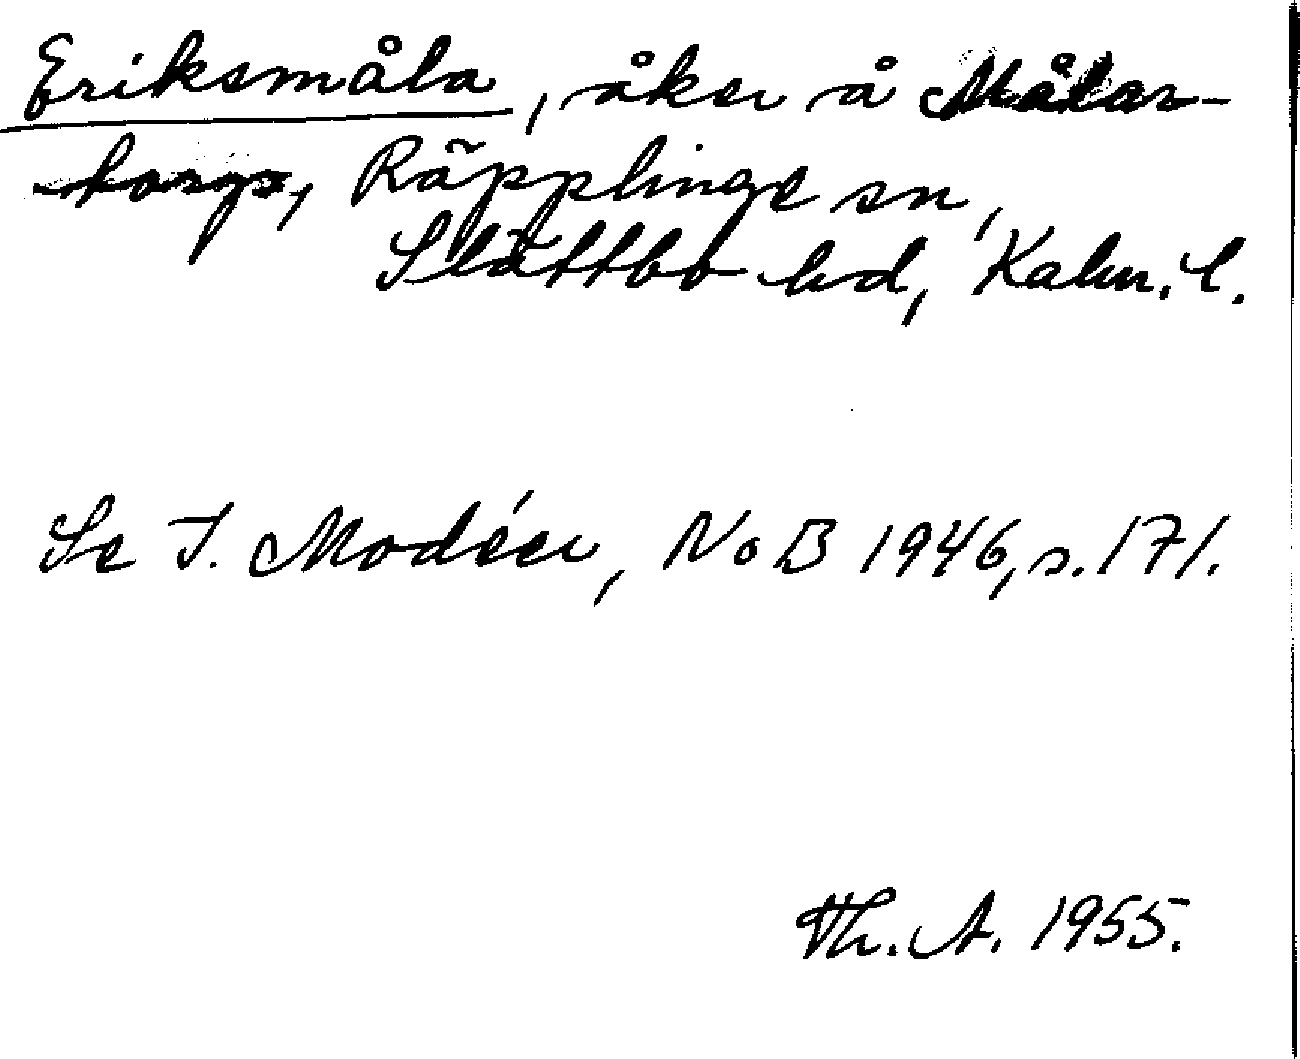 Eriksmåla, åker å Målar-
Räpplinge sn,
Slättbo hd, Kalm. l.
Se I. Modéer, NoB 1946, s. 171.
Th. A. 1955.